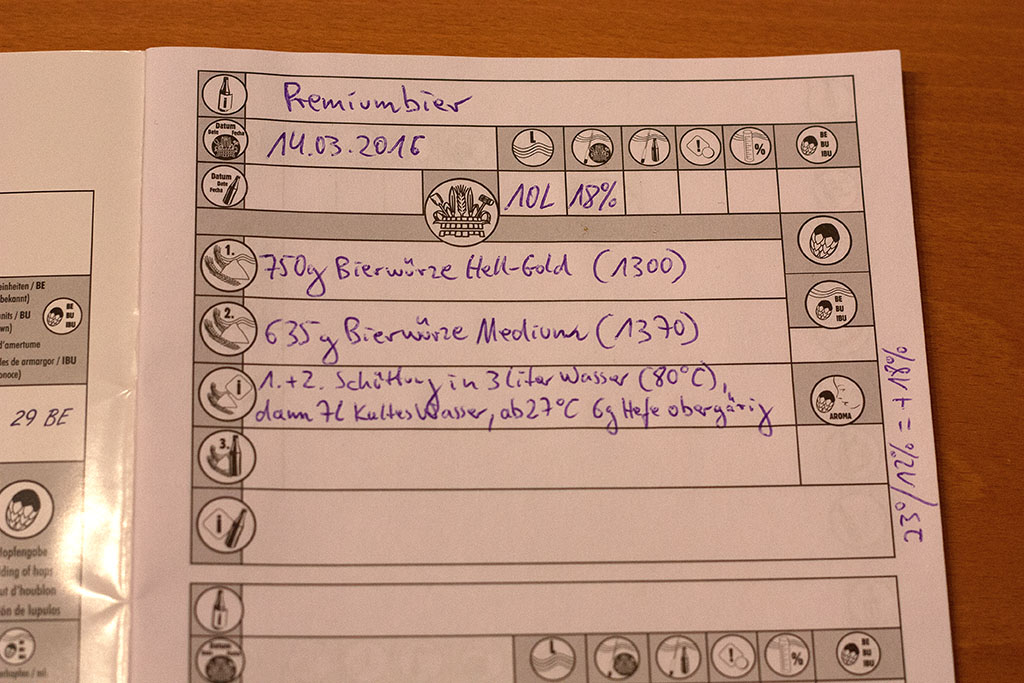 Premiumbier
Datum
Date Fecha
14.03.2016
L
%
BE
BU
IBU
Datum
Date
Fecha
10L 18%
1.
750g Bierwürze Hell-Gold (1300)
2.
635g Bierwürze Medium (1370)
BE
BU
IBU
i
1.+2. Schüttung in 3 liter Wasser (80°C),
dann 7l kaltes Wasser, ab 27°C 6g Hefe obergärig
AROMA
3.
i
23°/12% = +18%
Datum
L
%
BE
BU
IBU
einheiten / BE
bekannt)
nits / BU
wn)
d'amertume
les de armargor / IBU
onoce)
BE
BU
IBU
29 BE
Hopfengabe
ding of hops
ut d'houblon
ón de lupulos